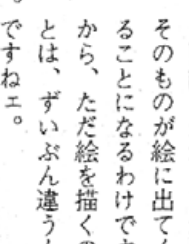 そのものが絵に出て
ることになるわけで
から、ただ絵を描くの
とは、ずいぶん違う
ですねェ。